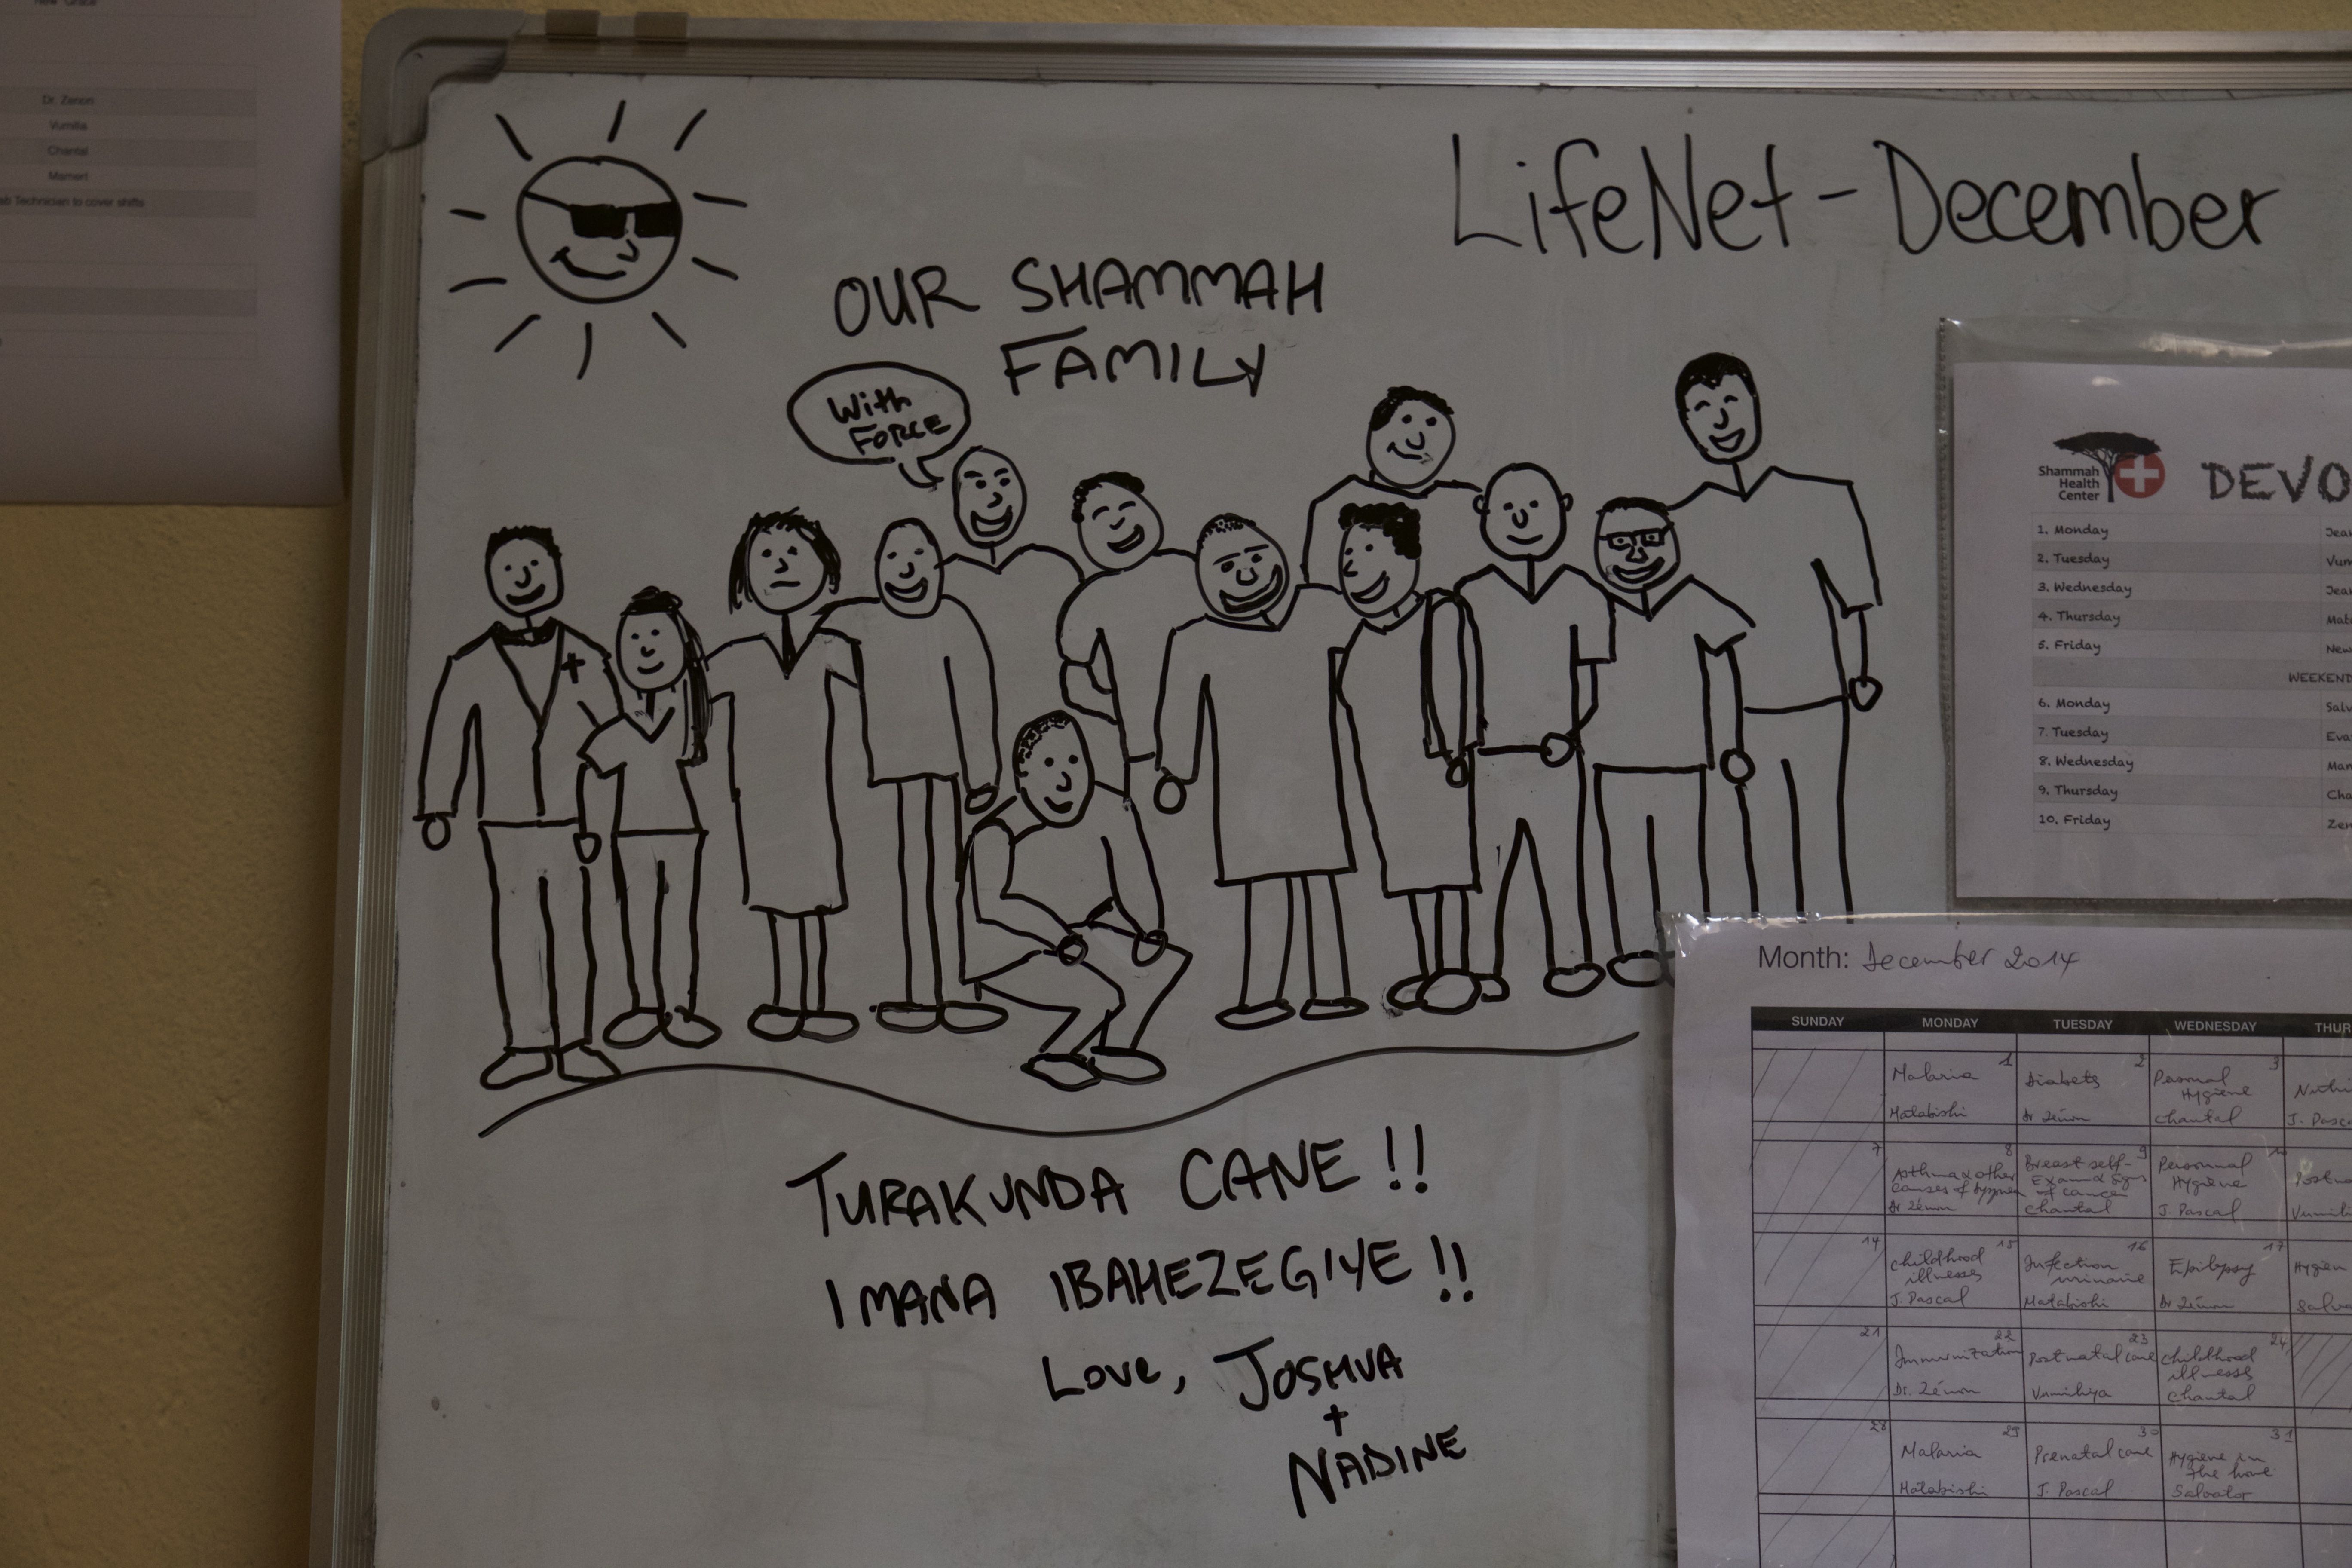 New Grace
Dr. Zenon
Vumilia
Chantal
Mamert
Technician to cover shifts
LifeNet - December
OUR SHAMMAH
FAMILY
With
FORCE
TURAKUNDA CANE !!
IMANA IBAHEZEGIYE !!
Love, JOSHUA
+
NADINE
Shammah
Health
Center
DEVO
1. Monday Jea
2. Tuesday Vum
3. Wednesday Jea
4. Thursday Mat
5. Friday New
WEEKEND
6. Monday Salv
7. Tuesday Eva
8. Wednesday Mam
9. Thursday Cha
10. Friday Zen
Month: December 2014
SUNDAY MONDAY TUESDAY WEDNESDAY THUR
1 2 3
Malaria Diabets Personal Hygiene
Matabishi Dr Zénon Chantal J. Pasc
7 8 9 10
Asthma & other causes of Breast self-Exam & signs of cancer Personnal Hygiene
Dr Zénon Chantal J. Pascal
14 15 16 17
childhood illnesses Infection urinaire Epilepsy Hygien
J. Pascal Matabishi Dr Zénon Salva
21 22 23 24
Immunization Postnatal care childhood illnesses
Dr. Zénon Vumiliya Chantal
28 29 30 31
Malaria Prenatal care Hygiene in the home
Matabishi J. Pascal Salvator